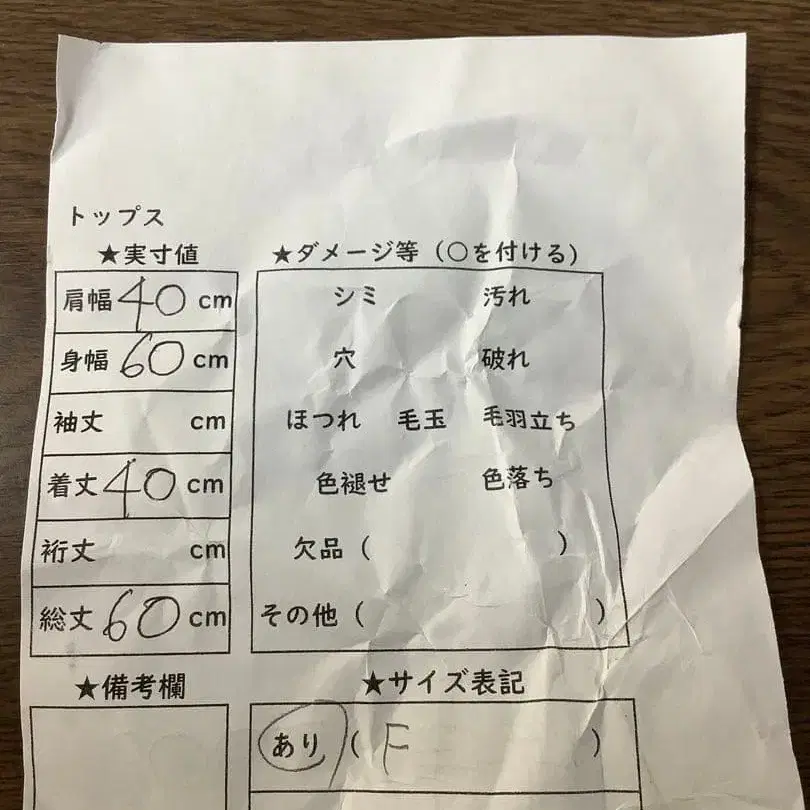 トップス
★実寸値
肩幅 40 cm
身幅 60 cm
袖丈 cm
着丈 40 cm
裄丈 cm
総丈 60 cm
★備考欄
★ダメージ等（○を付ける）
シミ 汚れ
穴 破れ
ほつれ 毛玉 毛羽立ち
色褪せ 色落ち
欠品（ ）
その他（ ）
★サイズ表記
あり（ F ）